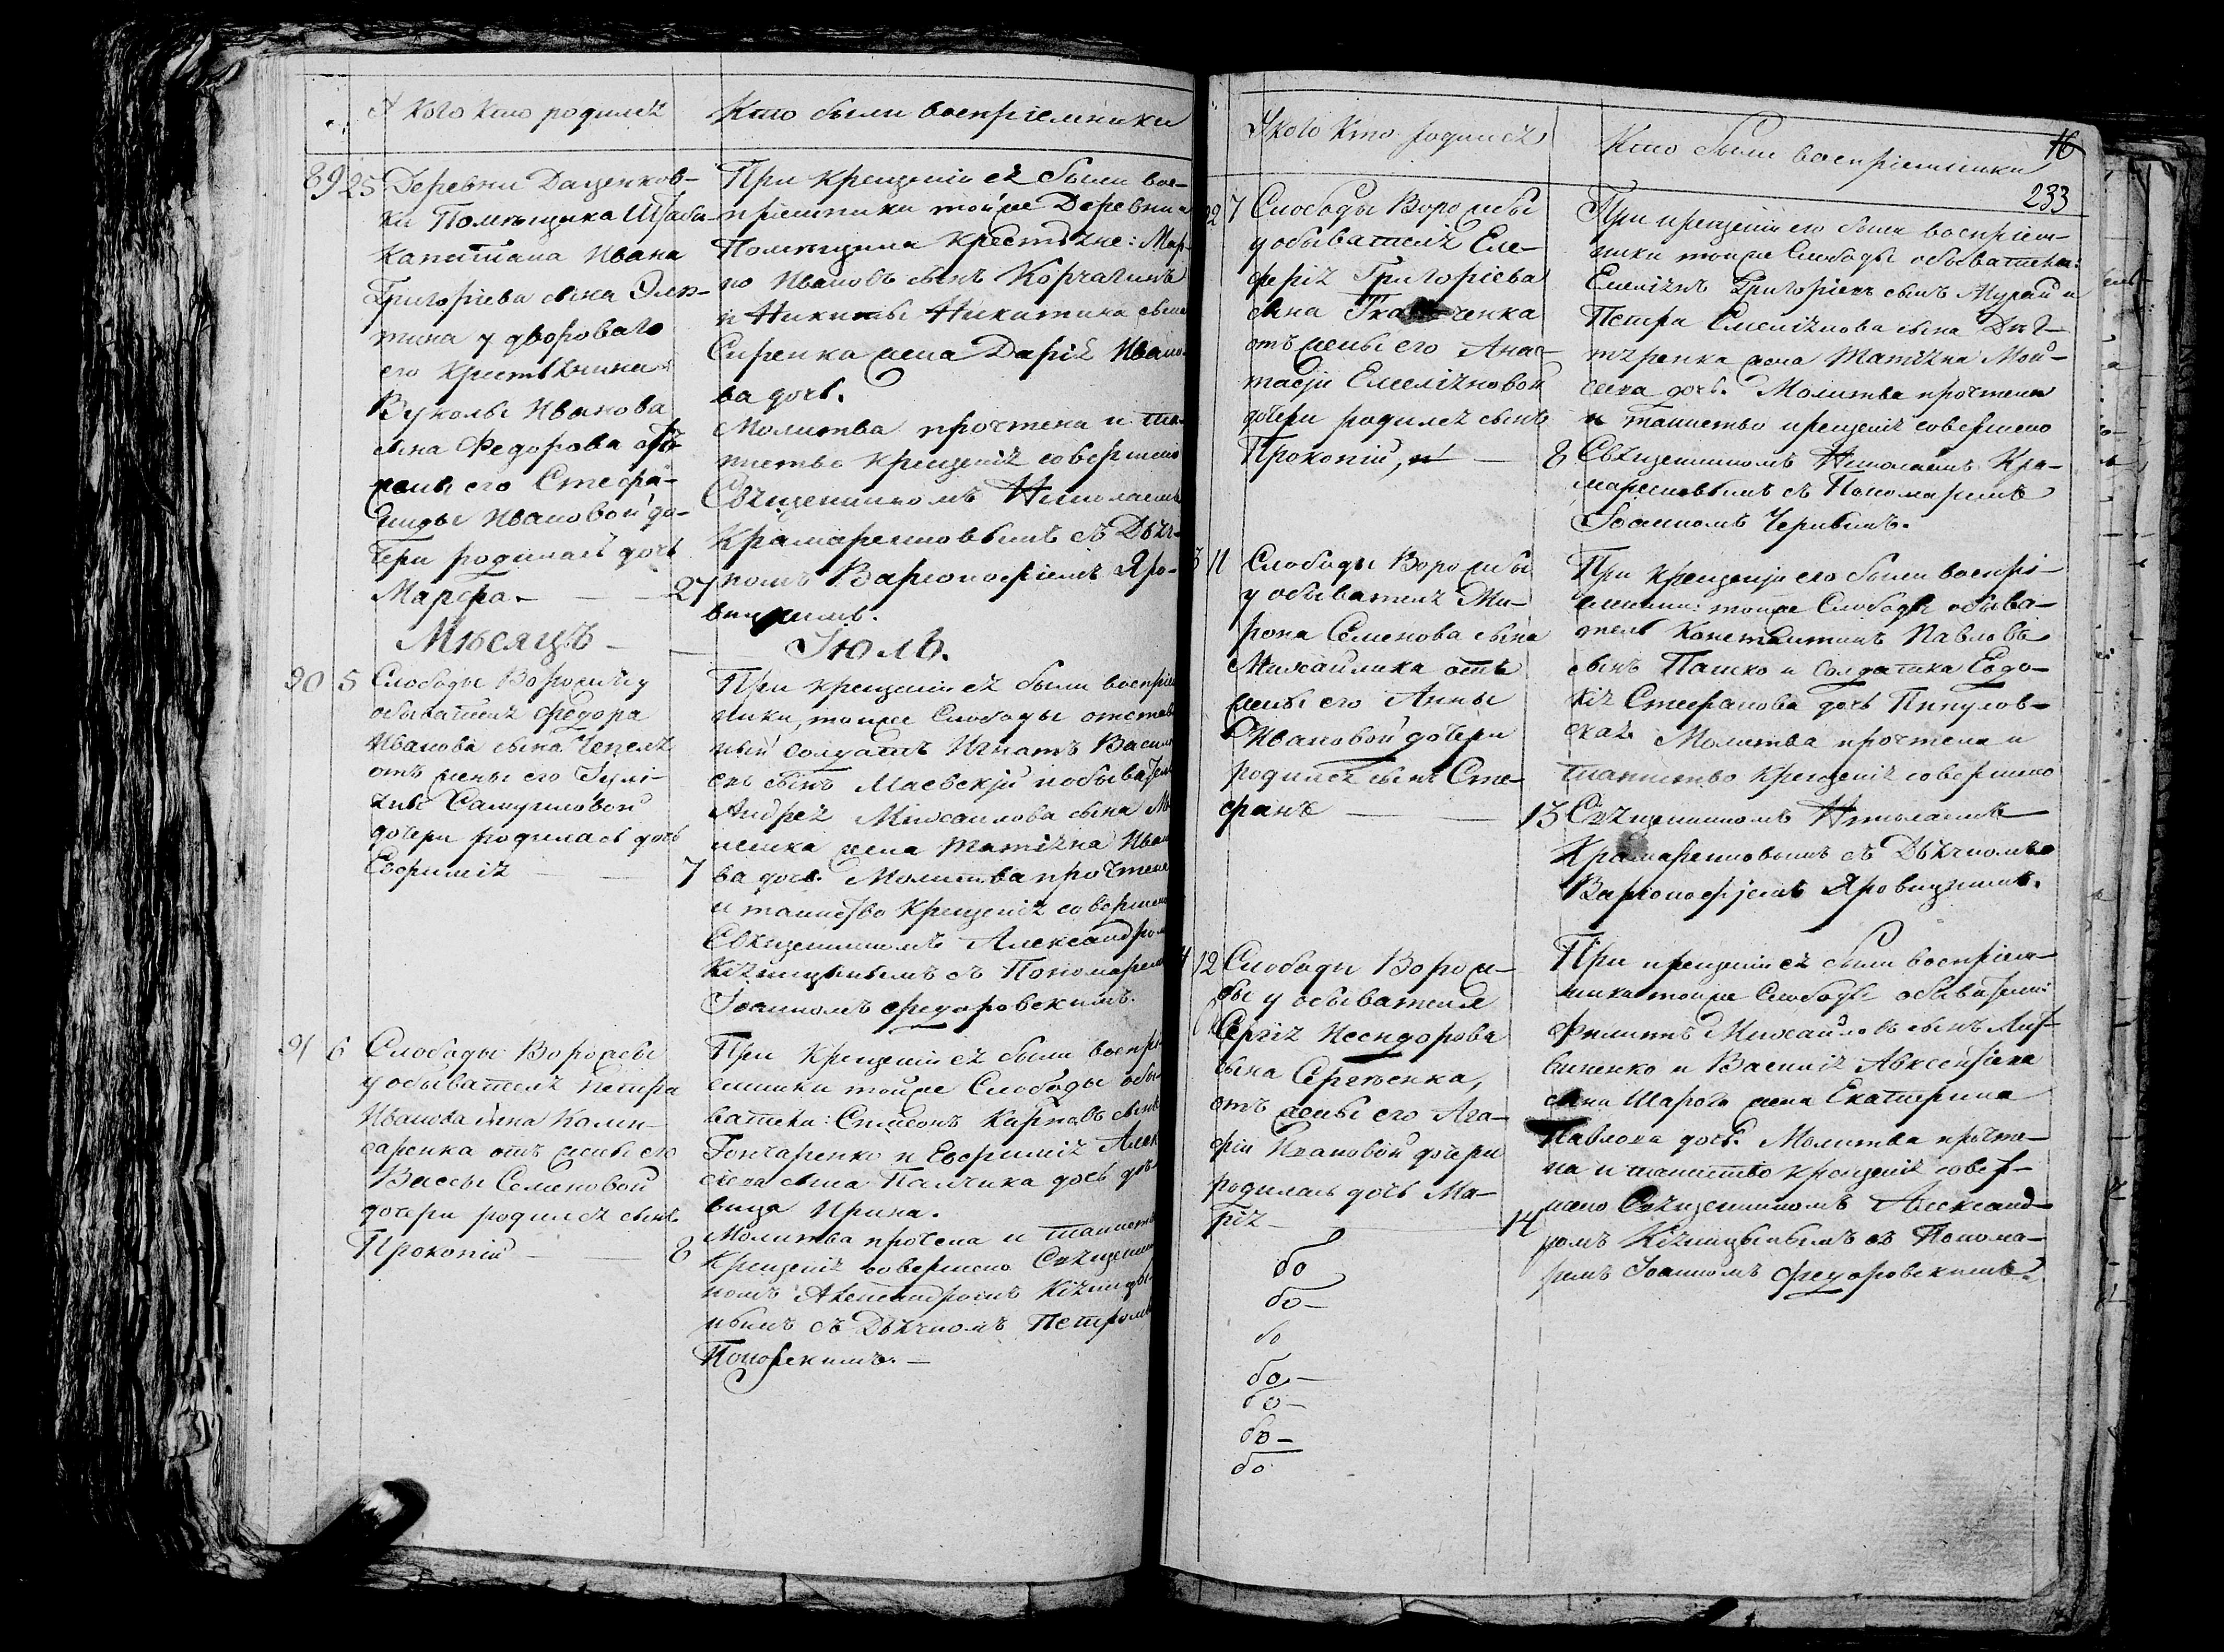 У кого кто родился
Кто были воспрiемники
89 25 Деревни Даценков-
ки Помѣщика Штабсъ
Капитана Ивана
Григорiева сына
тина у двороваго
его крестьянина
Вуколы Иванова
сына Федорова отъ
жены его Стефа-
ниды Ивановой до-
чери родилась дочь
Марфа. 27
При крещенiи ея были вос-
прiемники тойже Деревни
Помѣщика крестьяне: Мар-
ко Ивановъ сынъ Корчагинъ
и Никиты Никитина сына
Сиренка жена Дарiя Ивано-
ва дочь.
Молитва прочтена и таи-
нство крещенiя совершено
Священникомъ Николаемъ
Крамаренковымъ съ Дья-
комъ Варѳоломѣемъ Яро-
вицкимъ.
Мѣсяцъ Iюль.
90 5 Слободы Ворожбы у
обывателя Федора
Иванова сына Чепеля
отъ жены его Iулi-
яны Самуиловой
дочери родилась дочь
Евфимiя 7
При крещенiи ея были воспрiем-
ники, тойже Слободы отстав-
ный Солдатъ Игнатъ Василь-
евъ сынъ Маевскiй и обывателя
Андрея Михайлова сына
жена Матiяна Ива-
ва дочь. Молитва прочтена
и таинство крещенiя совершено
Священникомъ Александромъ
Кiяницынымъ съ Пономаремъ
Iоанномъ Федоровскимъ.
91 6 Слободы Ворожбы
у обывателя Петра
Иванова сына Коми-
саренка отъ жены его
Вассы Семеновой
дочери родился сынъ
Прокопiй 8
При крещенiи ея были воспрi-
емники тойже Слободы обы-
ватели: Спасонъ Карповъ сынъ
Гончаренко и Евфимiя Алек-
сiева сына Палчика дочь дѣ-
вица Ирина.
Молитва прочтена и таинство
Крещенiя совершено Священни-
комъ Александромъ Кiяницы-
нымъ съ Дьячкомъ Петромъ
Понорскимъ.
У кого кто родился
Кто были воспрiемники
16
233
92 7 Слободы Ворожбы
у обывателя Еле-
ферiя Григорiева
сына Ткаченка
отъ жены его Анас-
тасiи Емелiяновой
дочери родился сынъ
Прокопiй, 8
При крещенiи его были воспрiем-
ники тойже Слободы обыватели:
Емелiянъ Григорiевъ сынъ Мурай и
Петра Емелiянова сына Дѣг-
тяренка жена Матiяна Мой-
сеева дочь. Молитва прочтена
и таинство крещенiя совершено
Священникомъ Николаемъ Кра-
маренковымъ съ Пономаремъ
Iоанномъ Чернявымъ.
3 11 Слободы Ворожбы
у обывателя Ми-
рона Семенова сына
Михайлика отъ
жены его Анны
Ивановой дочери
родился сынъ Сте-
фанъ 13
При крещенiи его были воспрi-
емники: тойже Слободы обыва-
тель Константинъ Павловъ
сынъ Пашко и Солдатка Евдо-
кiя Стефанова дочь Пипулов-
ская. Молитва прочтена и
таинство крещенiя совершено
Священникомъ Николаемъ
Крамаренковымъ съ Дьячкомъ
Варѳоломѣемъ Яровицкимъ.
4 12 Слободы Ворож-
бы у обывателя
Сергiя Исидорова
сына Сергѣенка,
отъ жены его Ага-
фiи Ивановой дочери
родилась дочь Ма-
рiя 14
При крещенiи ея были воспрiем-
ники тойже Слободы обыватели:
Филипъ Михайловъ сынъ Лит-
виненко и Василiя Авксентiева
сына Шарого жена Екатерина
Павлова дочь. Молитва прочте-
на и таинство крещенiя совер-
шено Священникомъ Александ-
ромъ Кiяницынымъ съ Понома-
ремъ Iоанномъ Федоровскимъ.
бо
бо
бо
бо
бо
бо
бо